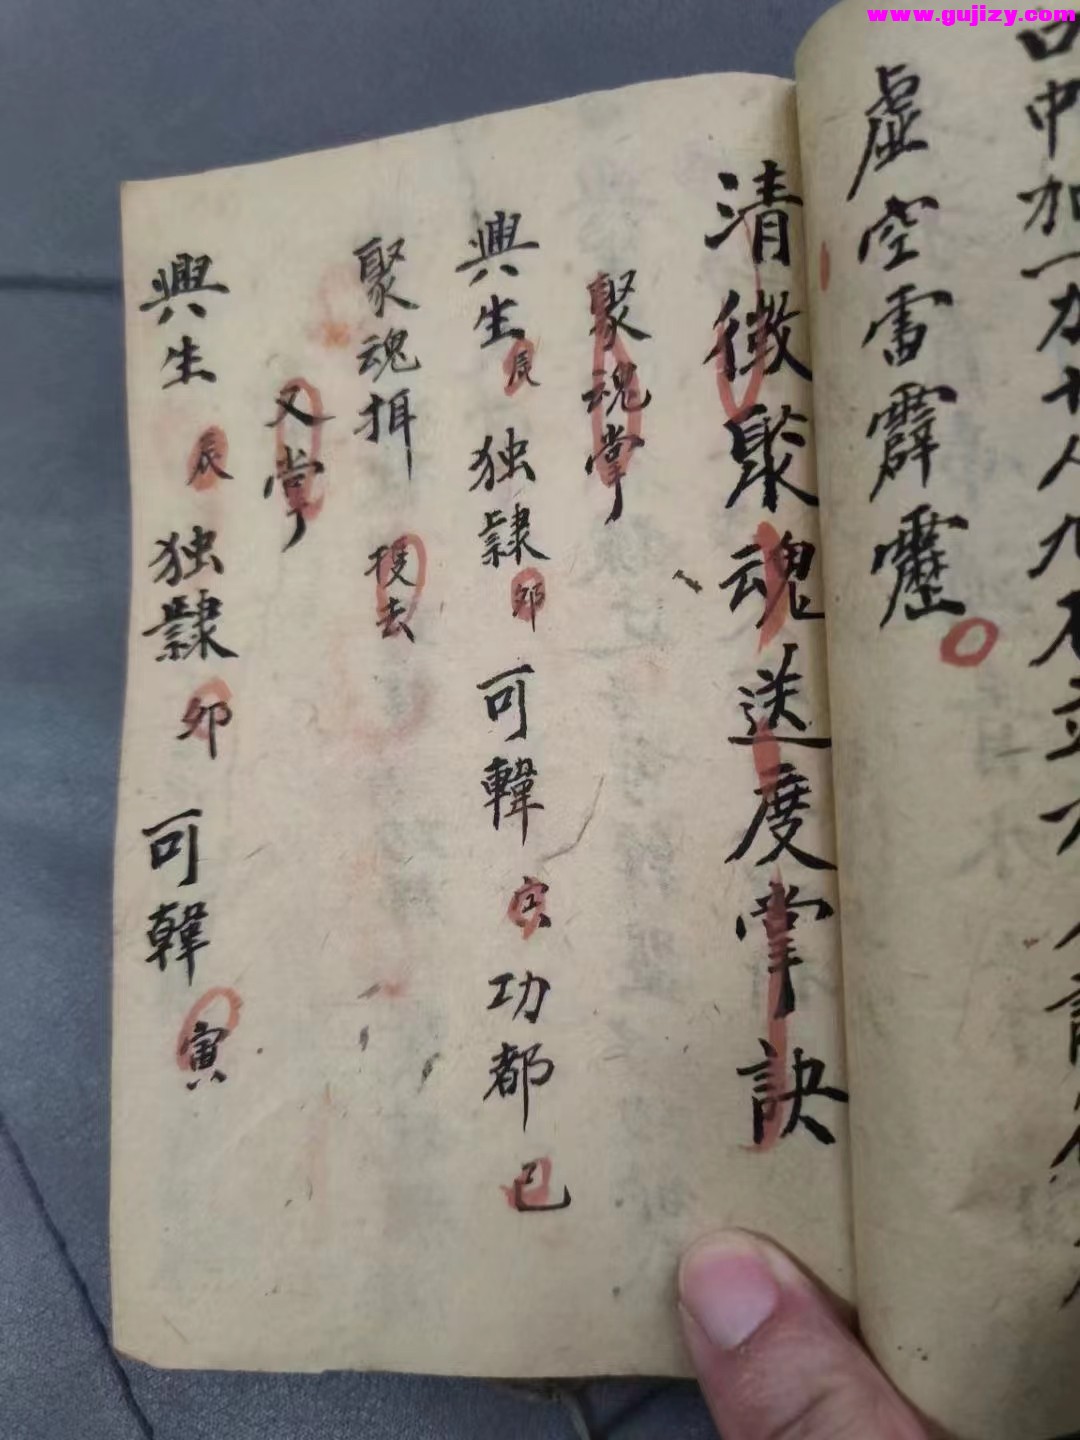 www.gujizy.com
口中加一
十八九
立
虛空雷霹靂
清微聚魂送度掌訣
聚魂掌
興生辰 独隷卯 可韓寅 功都巳
聚魂
去
又掌
興生辰 独隷卯 可韓寅